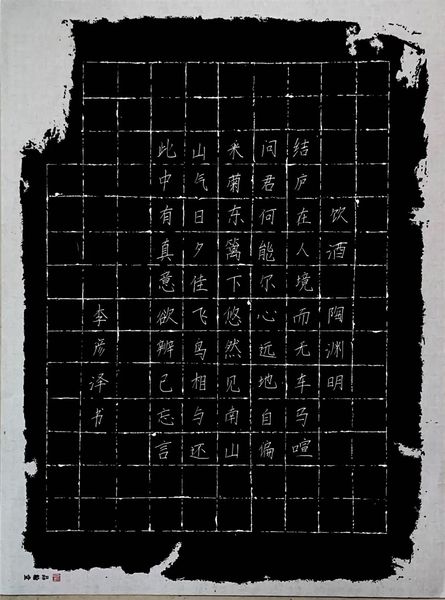 饮酒 陶渊明
结庐在人境而无车马喧
问君何能尔心远地自偏
采菊东篱下悠然见南山
山气日夕佳飞鸟相与还
此中有真意欲辨已忘言
李彦泽书